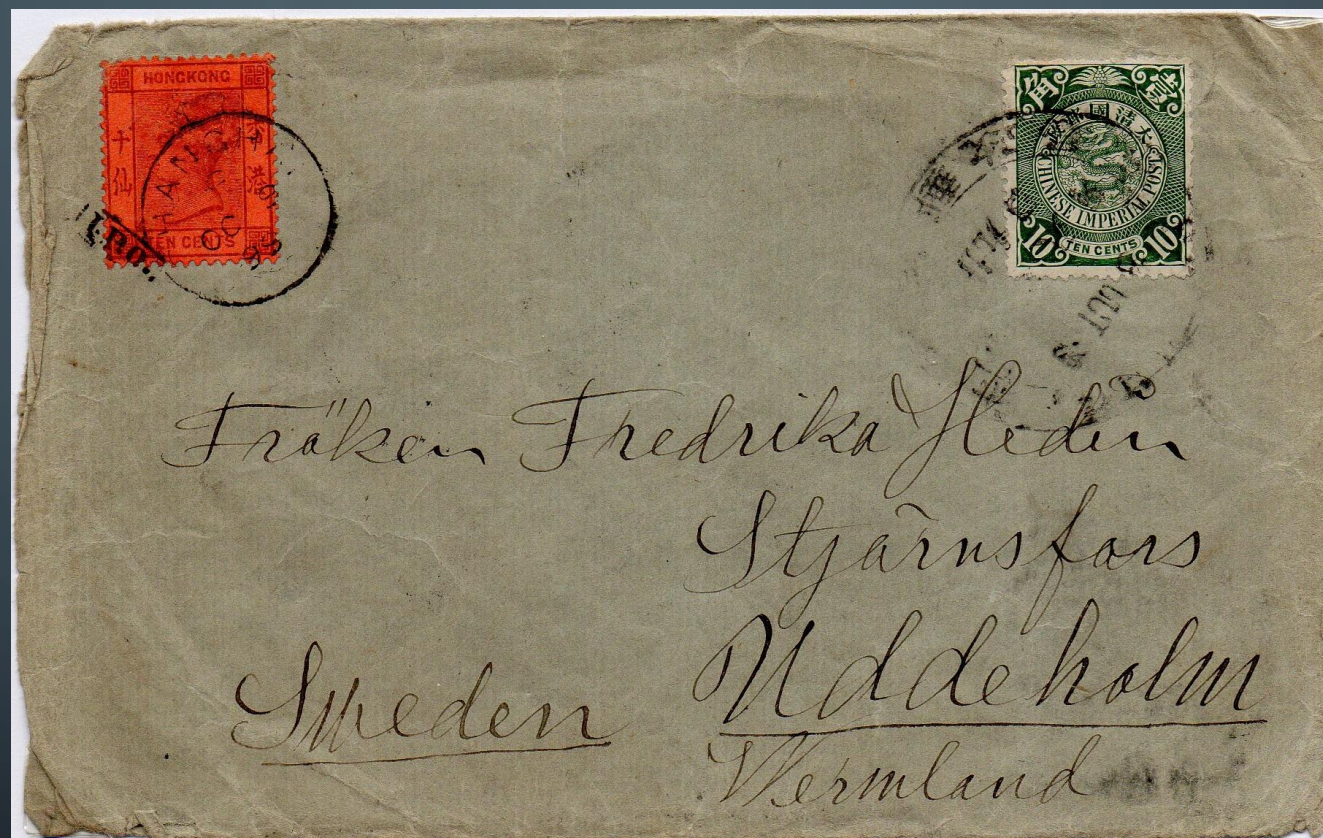 HONGKONG
TEN CENTS
角 壹
大清國郵政
CHINESE IMPERIAL POST
10 TEN CENTS 10
Fröken Fredrika Hedin
Stjärnsfors
Uddeholm
Sweden
Wermland